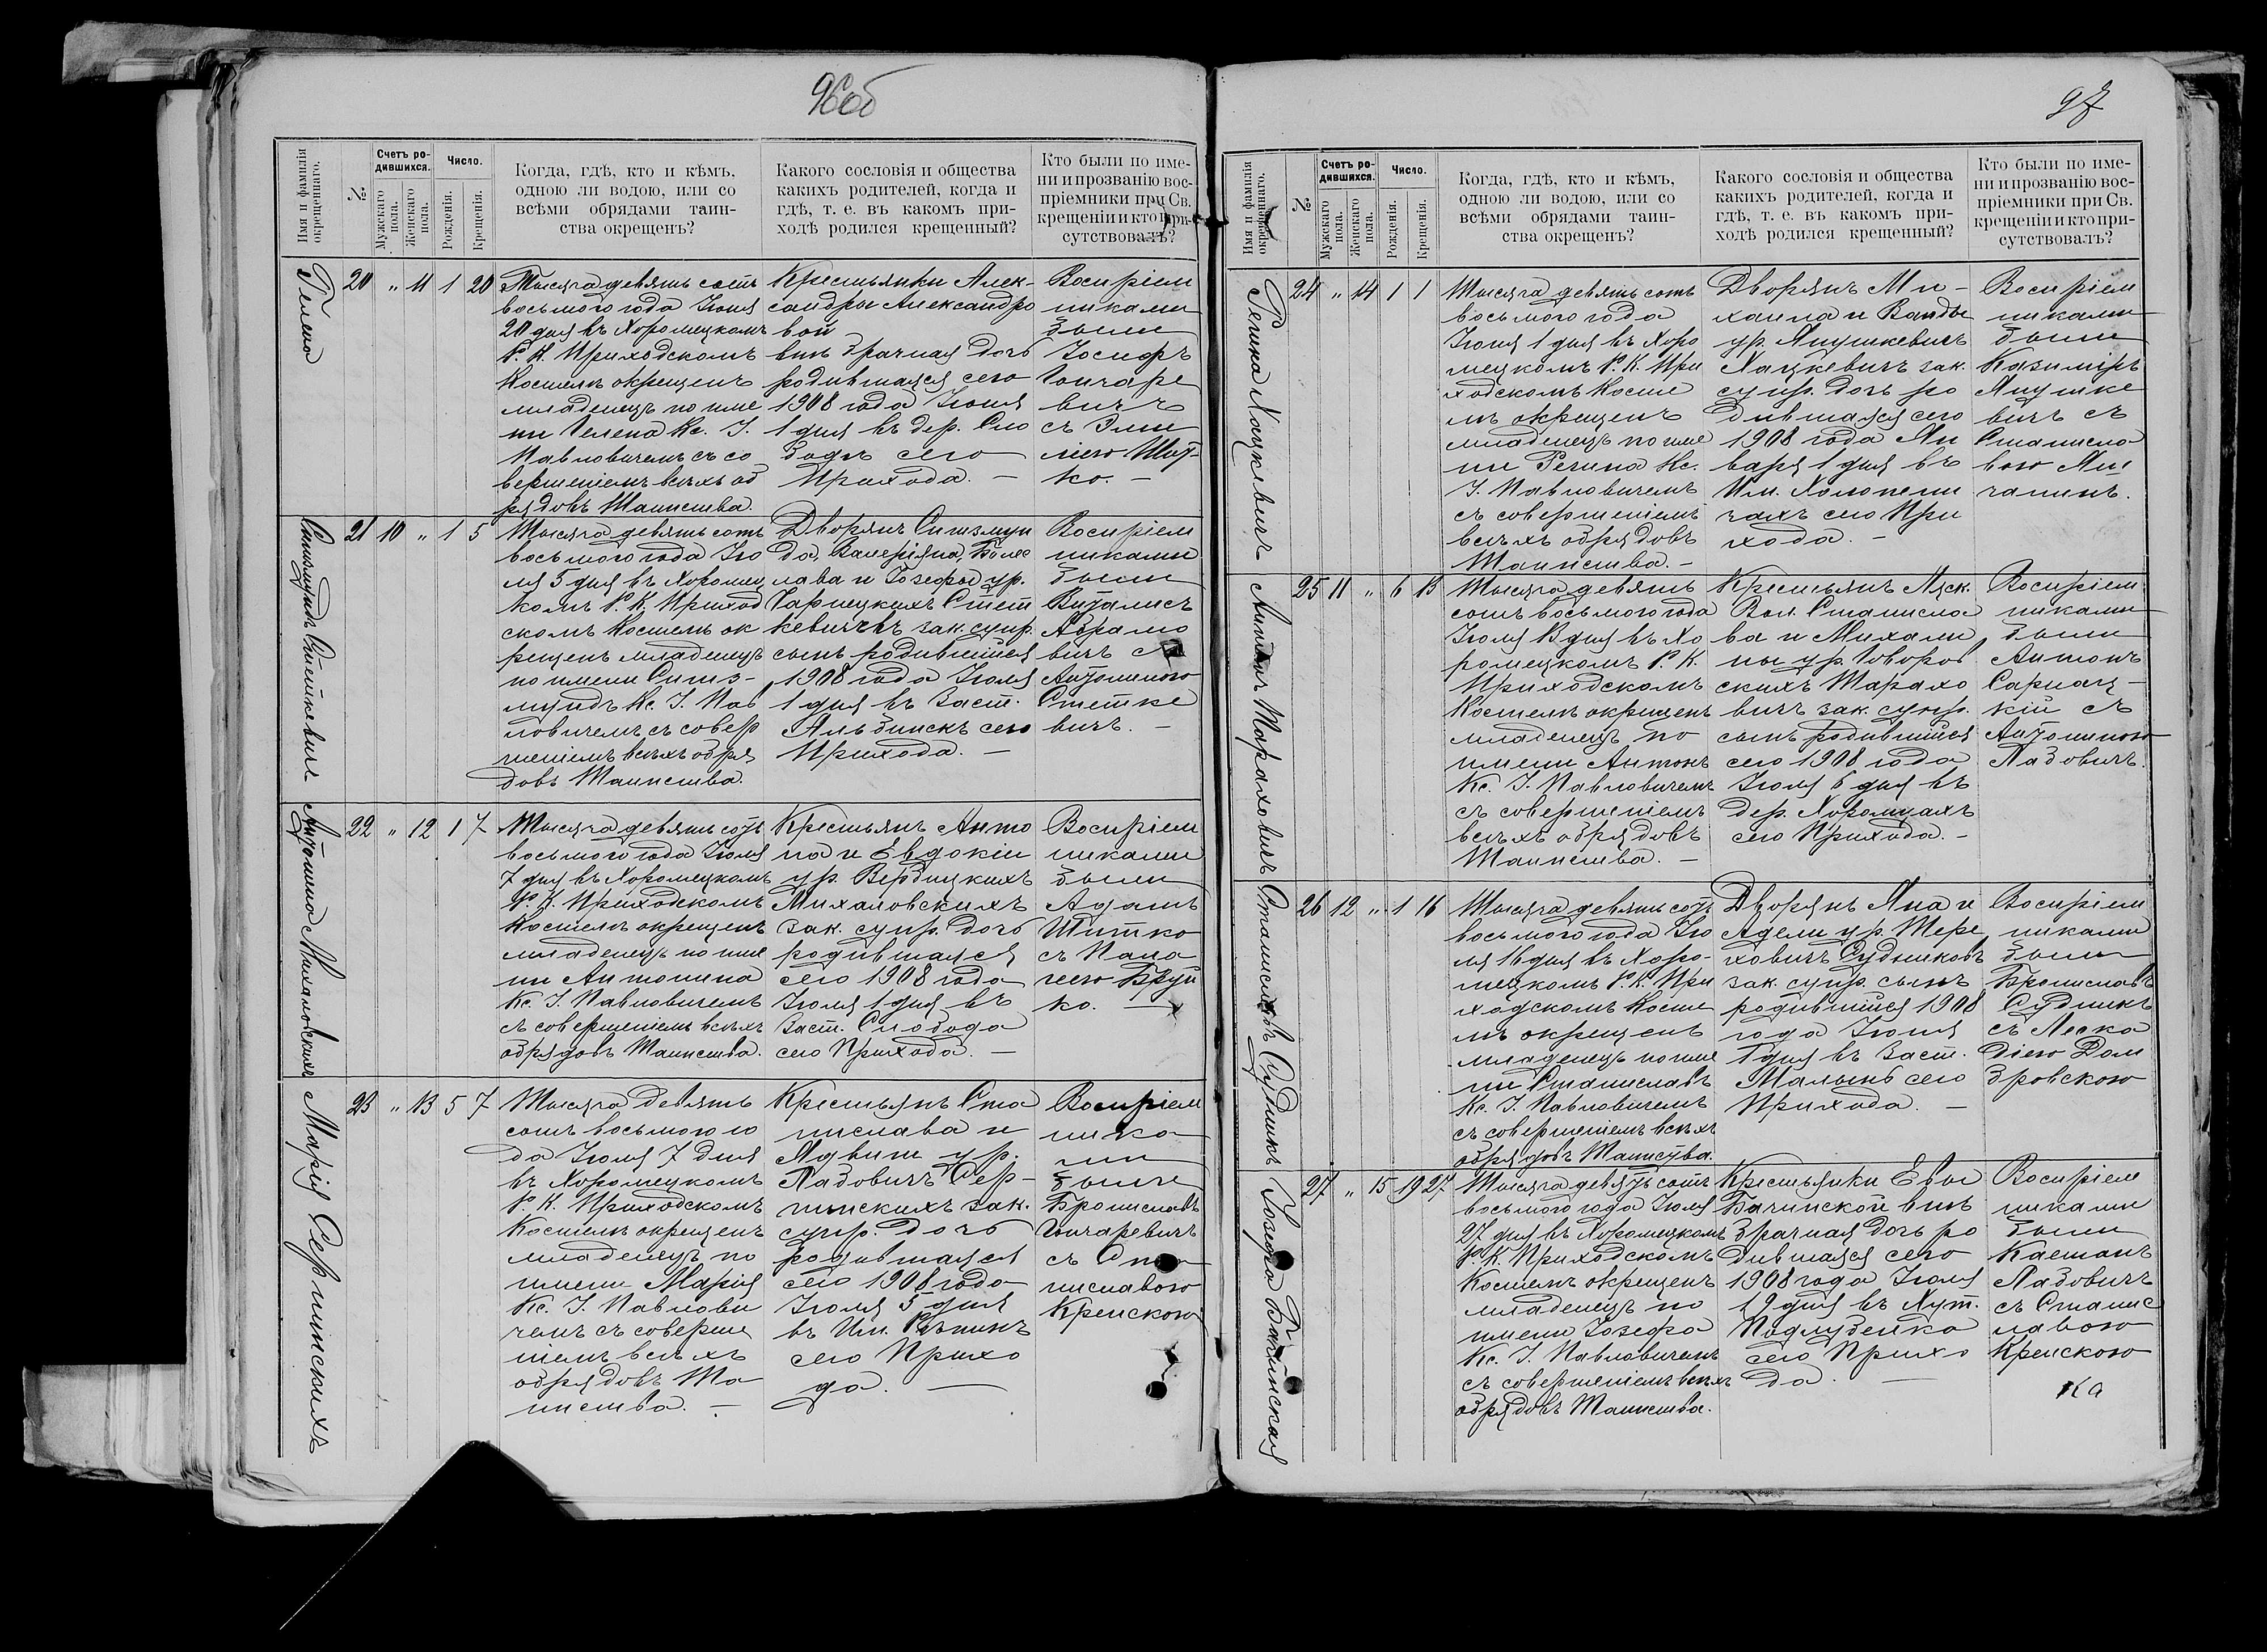 96об
Имя и фамилія окрещеннаго.
№
Счетъ родившихся.
Мужскаго пола.
Женскаго пола.
Число.
Рожденія.
Крещенія.
Когда, гдѣ, кто и кѣмъ,
одною ли водою, или со
всѣми обрядами таин-
ства окрещенъ?
Какого сословія и общества
какихъ родителей, когда и
гдѣ, т. е. въ какомъ при-
ходѣ родился крещенный?
Кто были по име-
ни и прозванію вос-
пріемники при Св.
крещеніи и кто при-
сутствовалъ?
Гелена
20 " 11 1 20
Тысяча девятьсотъ
восьмого года Іюня
20 дня въ Хоромецкомъ
Р. К. Приходскомъ
Костелѣ окрещенъ
младенецъ по име
ни Гелена Кс. І.
Павловичемъ съ со
вершеніемъ всѣхъ об
рядовъ Таинства.
Крестьянки Алек-
сандры Александро
вой
внѣ брачная дочь
родившаяся сего
1908 года Іюня
1 дня въ дер. Сло
бодѣ сего
Прихода. —
Воспріем
никами
были
Іосифъ
Гончаре
вичъ
съ Эми
ліею Шут-
ко. —
Сигизмундъ Стеткевичъ
21 10 " 1 5
Тысяча девятьсотъ
восьмого года Ію
ля 5 дня въ Хоромец
комъ Р. К. Приход
скомъ Костелѣ ок
рещенъ младенецъ
по имени Сигиз-
мундъ Кс. І. Пав
ловичемъ съ совер
шеніемъ всѣхъ обря
довъ Таинства.
Дворянъ Сигизмун
да, Валеріяна, Болес
лава и Іозефы ур.
Гарнецкихъ Стет
кевичевъ зак. супр.
сынъ родившійся
1908 года Іюля
1 дня въ Заст.
Альбинскѣ сего
Прихода. —
Воспріем
никами
были
Виталисъ
Абрамо
вичъ съ
Антониною
Стетке
вичъ. —
Антонина Михаловскихъ
22 " 12 1 7
Тысяча девятьсотъ
восьмого года Іюля
7 дня въ Хоромецкомъ
Р. К. Приходскомъ
Костелѣ окрещенъ
младенецъ по име
ни Антонина
Кс. І. Павловичемъ
съ совершеніемъ всѣхъ
обрядовъ Таинства.
Крестьянъ Анто
на и Евдокіи
ур. Вербицкихъ
Михаловскихъ
зак. супр. дочь
родившаяся
сего 1908 года
Іюля 1 дня въ
Заст. Слобода
сего Прихода. —
Воспріем
никами
были
Адамъ
Шутко
съ Пала
геею Бруй
ко. —
Марія Серпинскихъ
23 " 13 5 7
Тысяча девять
сотъ восьмого го
да Іюля 7 дня
въ Хоромецкомъ
Р. К. Приходскомъ
Костелѣ окрещенъ
младенецъ по
имени Марія
Кс. І. Павлови
чемъ съ соверше
ніемъ всѣхъ
обрядовъ Та
инства. —
Крестьянъ Ста
нислава и
Ядвиги ур.
Лабовичъ Сер-
пинскихъ зак.
супр. дочь
родившаяся
сего 1908 года
Іюля 5 дня
въ Им. Рѣпинѣ
сего Прихо
да. —
Воспріем
ника
ми
были
Брониславъ
Гончаревичъ
съ Ста
ниславою
Крейскою
97
Имя и фамилія окрещеннаго.
№
Счетъ родившихся.
Мужскаго пола.
Женскаго пола.
Число.
Рожденія.
Крещенія.
Когда, гдѣ, кто и кѣмъ,
одною ли водою, или со
всѣми обрядами таин-
ства окрещенъ?
Какого сословія и общества
какихъ родителей, когда и
гдѣ, т. е. въ какомъ при-
ходѣ родился крещенный?
Кто были по име-
ни и прозванію вос-
пріемники при Св.
крещеніи и кто при-
сутствовалъ?
Регина Хацкевичъ
24 " 14 1 1
Тысяча девятьсотъ
восьмого года
Іюля 1 дня въ Хоро
мецкомъ Р. К. При
ходскомъ Косте
лѣ окрещенъ
младенецъ по име
ни Регина Кс.
І. Павловичемъ
съ совершеніемъ
всѣхъ обрядовъ
Таинства. —
Дворянъ Ми-
хаила и Ванды
ур. Янушкевичъ
Хацкевичъ зак.
супр. дочь ро
дившаяся сего
1908 года Ян
варя 1 дня въ
Им. Холопени
чахъ сего При
хода. —
Воспріем
никами
были
Казиміръ
Янушке
вичъ съ
Станисла
вою
Антонъ Тараховичъ
25 11 " 6 13
Тысяча девять
сотъ восьмого года
Іюля 13 дня въ Хо
ромецкомъ Р. К.
Приходскомъ
Костелѣ окрещенъ
младенецъ по
имени Антонъ
Кс. І. Павловичемъ
съ совершеніемъ
всѣхъ обрядовъ
Таинства. —
Крестьянъ Ляск.
Вол. Станисла
ва и Михали
ны ур. Говоров
скихъ Тарахо
вичъ зак. супр.
сынъ родившійся
сего 1908 года
Іюля 6 дня въ
дер. Хоромцахъ
сего Прихода. —
Воспріем
никами
были
Антонъ
Сарнац-
кій съ
Антониною
Лабовичъ.
Станиславъ Судникъ
26 12 " 1 16
Тысяча девятьсотъ
восьмого года Ію
ля 16 дня въ Хоро-
мецкомъ Р. К. При
ходскомъ Косте
лѣ окрещенъ
младенецъ по име
ни Станиславъ
Кс. І. Павловичемъ
съ совершеніемъ всѣхъ
обрядовъ Таинства.
Дворянъ Яна и
Адели ур. Тере
ховичъ Судниковъ
зак. супр. сынъ
родившійся 1908
года Іюля
1 дня въ Заст.
Малынь сего
Прихода. —
Воспріем
никами
были
Брониславъ
Судникъ
съ Леока
діею Дом
бровскою
Іозефа Бачинская
27 " 15 19 27
Тысяча девятьсотъ
восьмого года Іюля
27 дня въ Хоромецкомъ
Р. К. Приходскомъ
Костелѣ окрещенъ
младенецъ по
имени Іозефа
Кс. І. Павловичемъ
съ совершеніемъ всѣхъ
обрядовъ Таинства.
Крестьянки Евы
Бачинской внѣ
брачная дочь ро
дившаяся сего
1908 года Іюля
19 дня въ Хут.
Подлубейка
сего Прихо
да. —
Воспріем
никами
были
Каетанъ
Лабовичъ
съ Станис
лавою
Крейскою